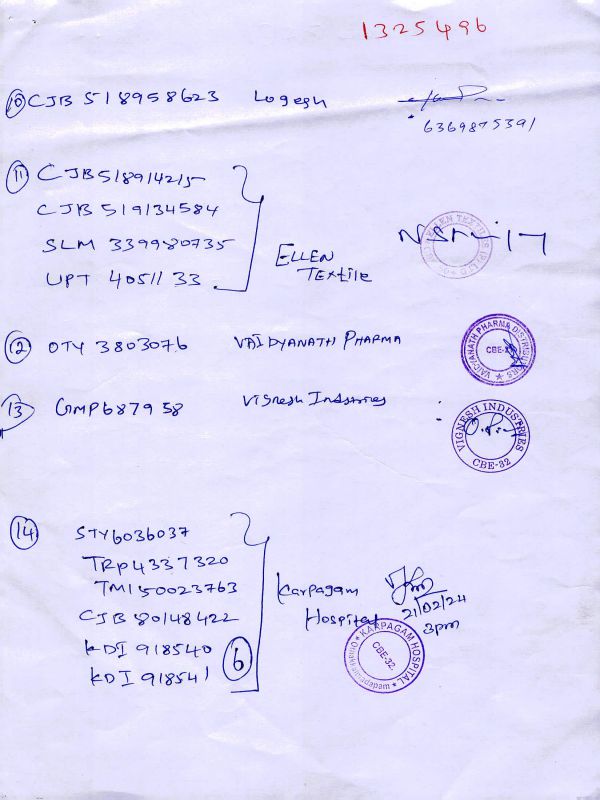 1325496
10 CJB 518958623 Logesh
6369875391
11 CJB518914215
CJB 519134584
SLM 339980735
UPT 4051133
ELLEN
TEXtile
12 OTY 3803076 VAIDYANATH PHARMA
VAIDYANATH PHARMA DISTRIBUTORS
CBE-
13 GMP687958 Vignesh Industries
VIGNESH INDUSTRIES
CBE-32
14 STY6036037
TRP4337320
TM150023763
CJB 580148422
KDI 918540
KDI 918541
6
Karpagam
Hospital
21/02/24
3pm
KARPAGAM HOSPITAL
CBE-32.